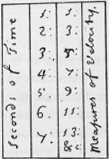 Seconds of Time
1: 1:
2: 3:
3: 5:
4: 7:
5: 9:
6: 11:
7: 13:
&c:
Measures of Velocity.